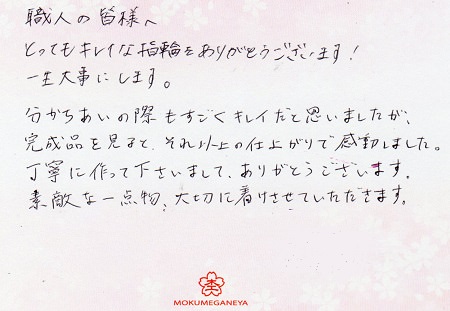 職人の皆様へ
とってもキレイな指輪をありがとうございます！
一生大事にします。
分かちあいの際もすごくキレイだと思いましたが、
完成品を見ると、それ以上の仕上がりで感動しました。
丁寧に作って下さいまして、ありがとうございます。
素敵な一点物、大切に着けさせていただきます。
MOKUMEGANEYA